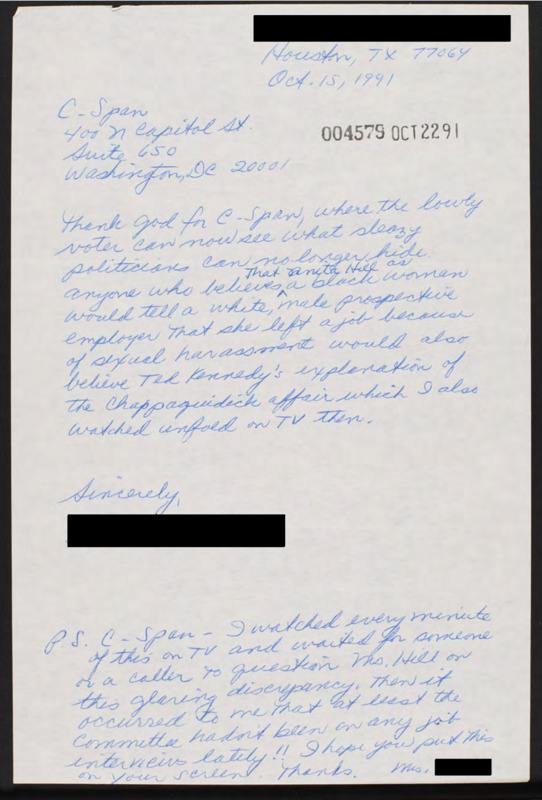 Houston, TX 77064
Oct. 15, 1991
C-Span
400 N Capitol St.
Suite 650
Washington, DC 20001
004579 OCT2291
Thank God for C-Span, where the lowly
voter can now see what sleazy
politicians can no longer hide.
That Anita Hill as
anyone who believes ^ a black woman
would tell a white, male prospective
employer that she left a job because
of sexual harassment would also
believe Ted Kennedy's explanation of
the Chappaquidick affair which I also
watched unfold on TV then.
Sincerely,
P.S. C-Span - I watched every minute
of this on TV and waited for someone
or a caller to question Ms. Hill on
this glaring discrepancy. Then it
occurred to me that at least the
committee hadn't been on any job
interviews lately!! I hope you put this
on your screen. Thanks. Ms.